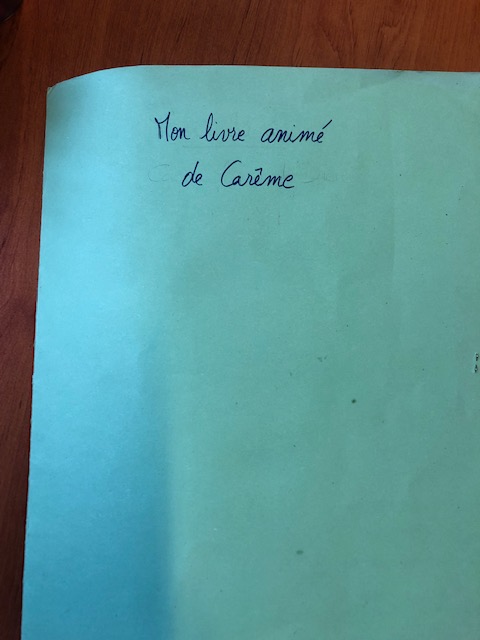 Mon livre animé
de Carême